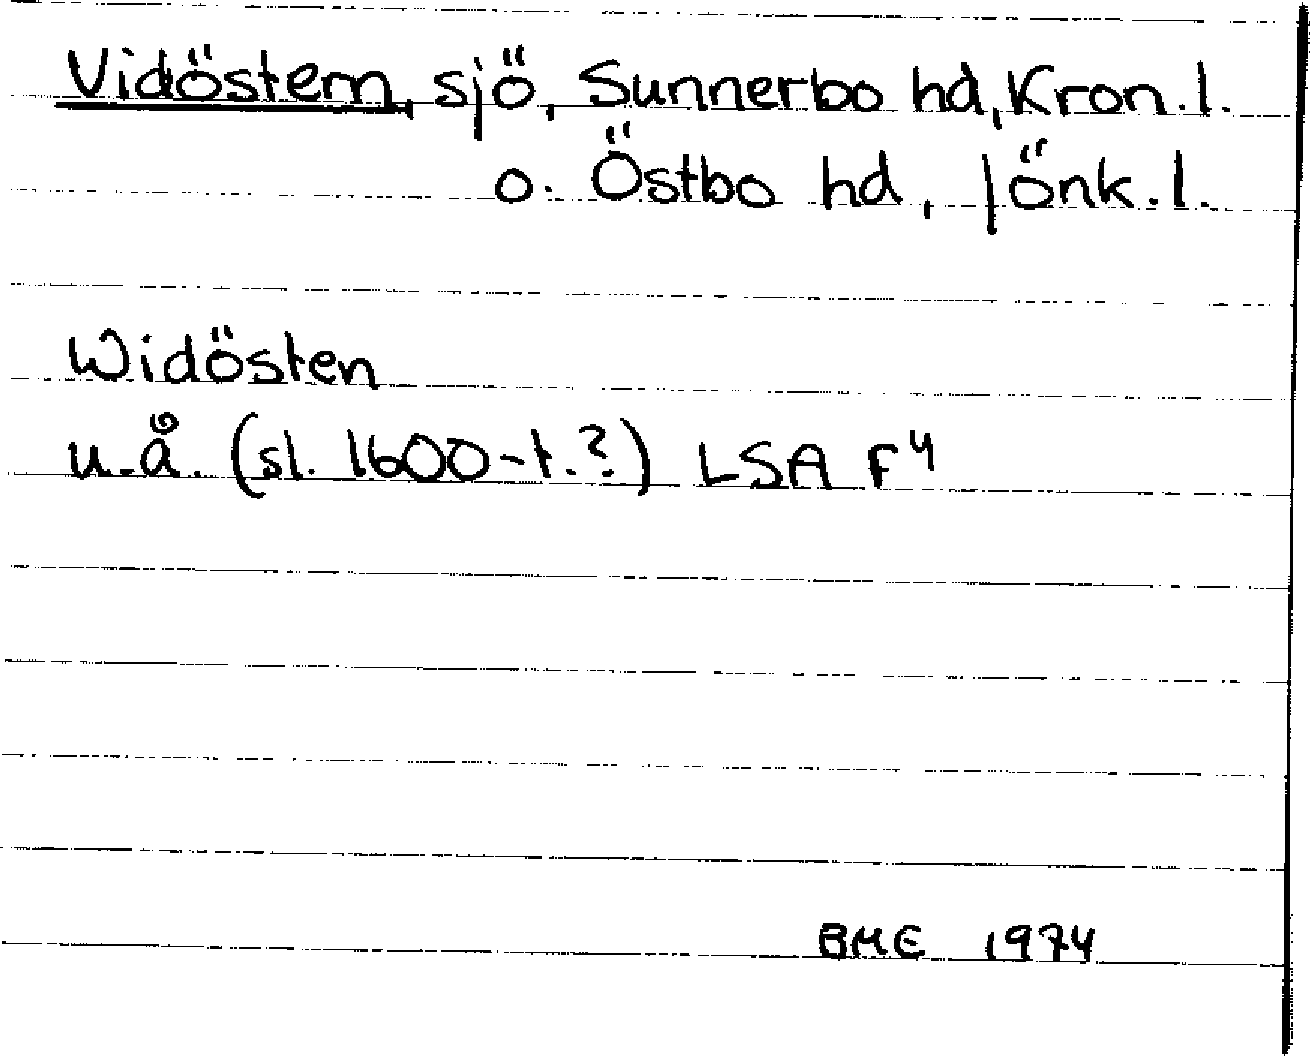 Vidöstern, sjö, Sunnerbo hd, Kron.l.
o. Östbo hd, Jönk.l.
Widösten
u.å. (sl. 1600-t.?) LSA F4
BME 1974